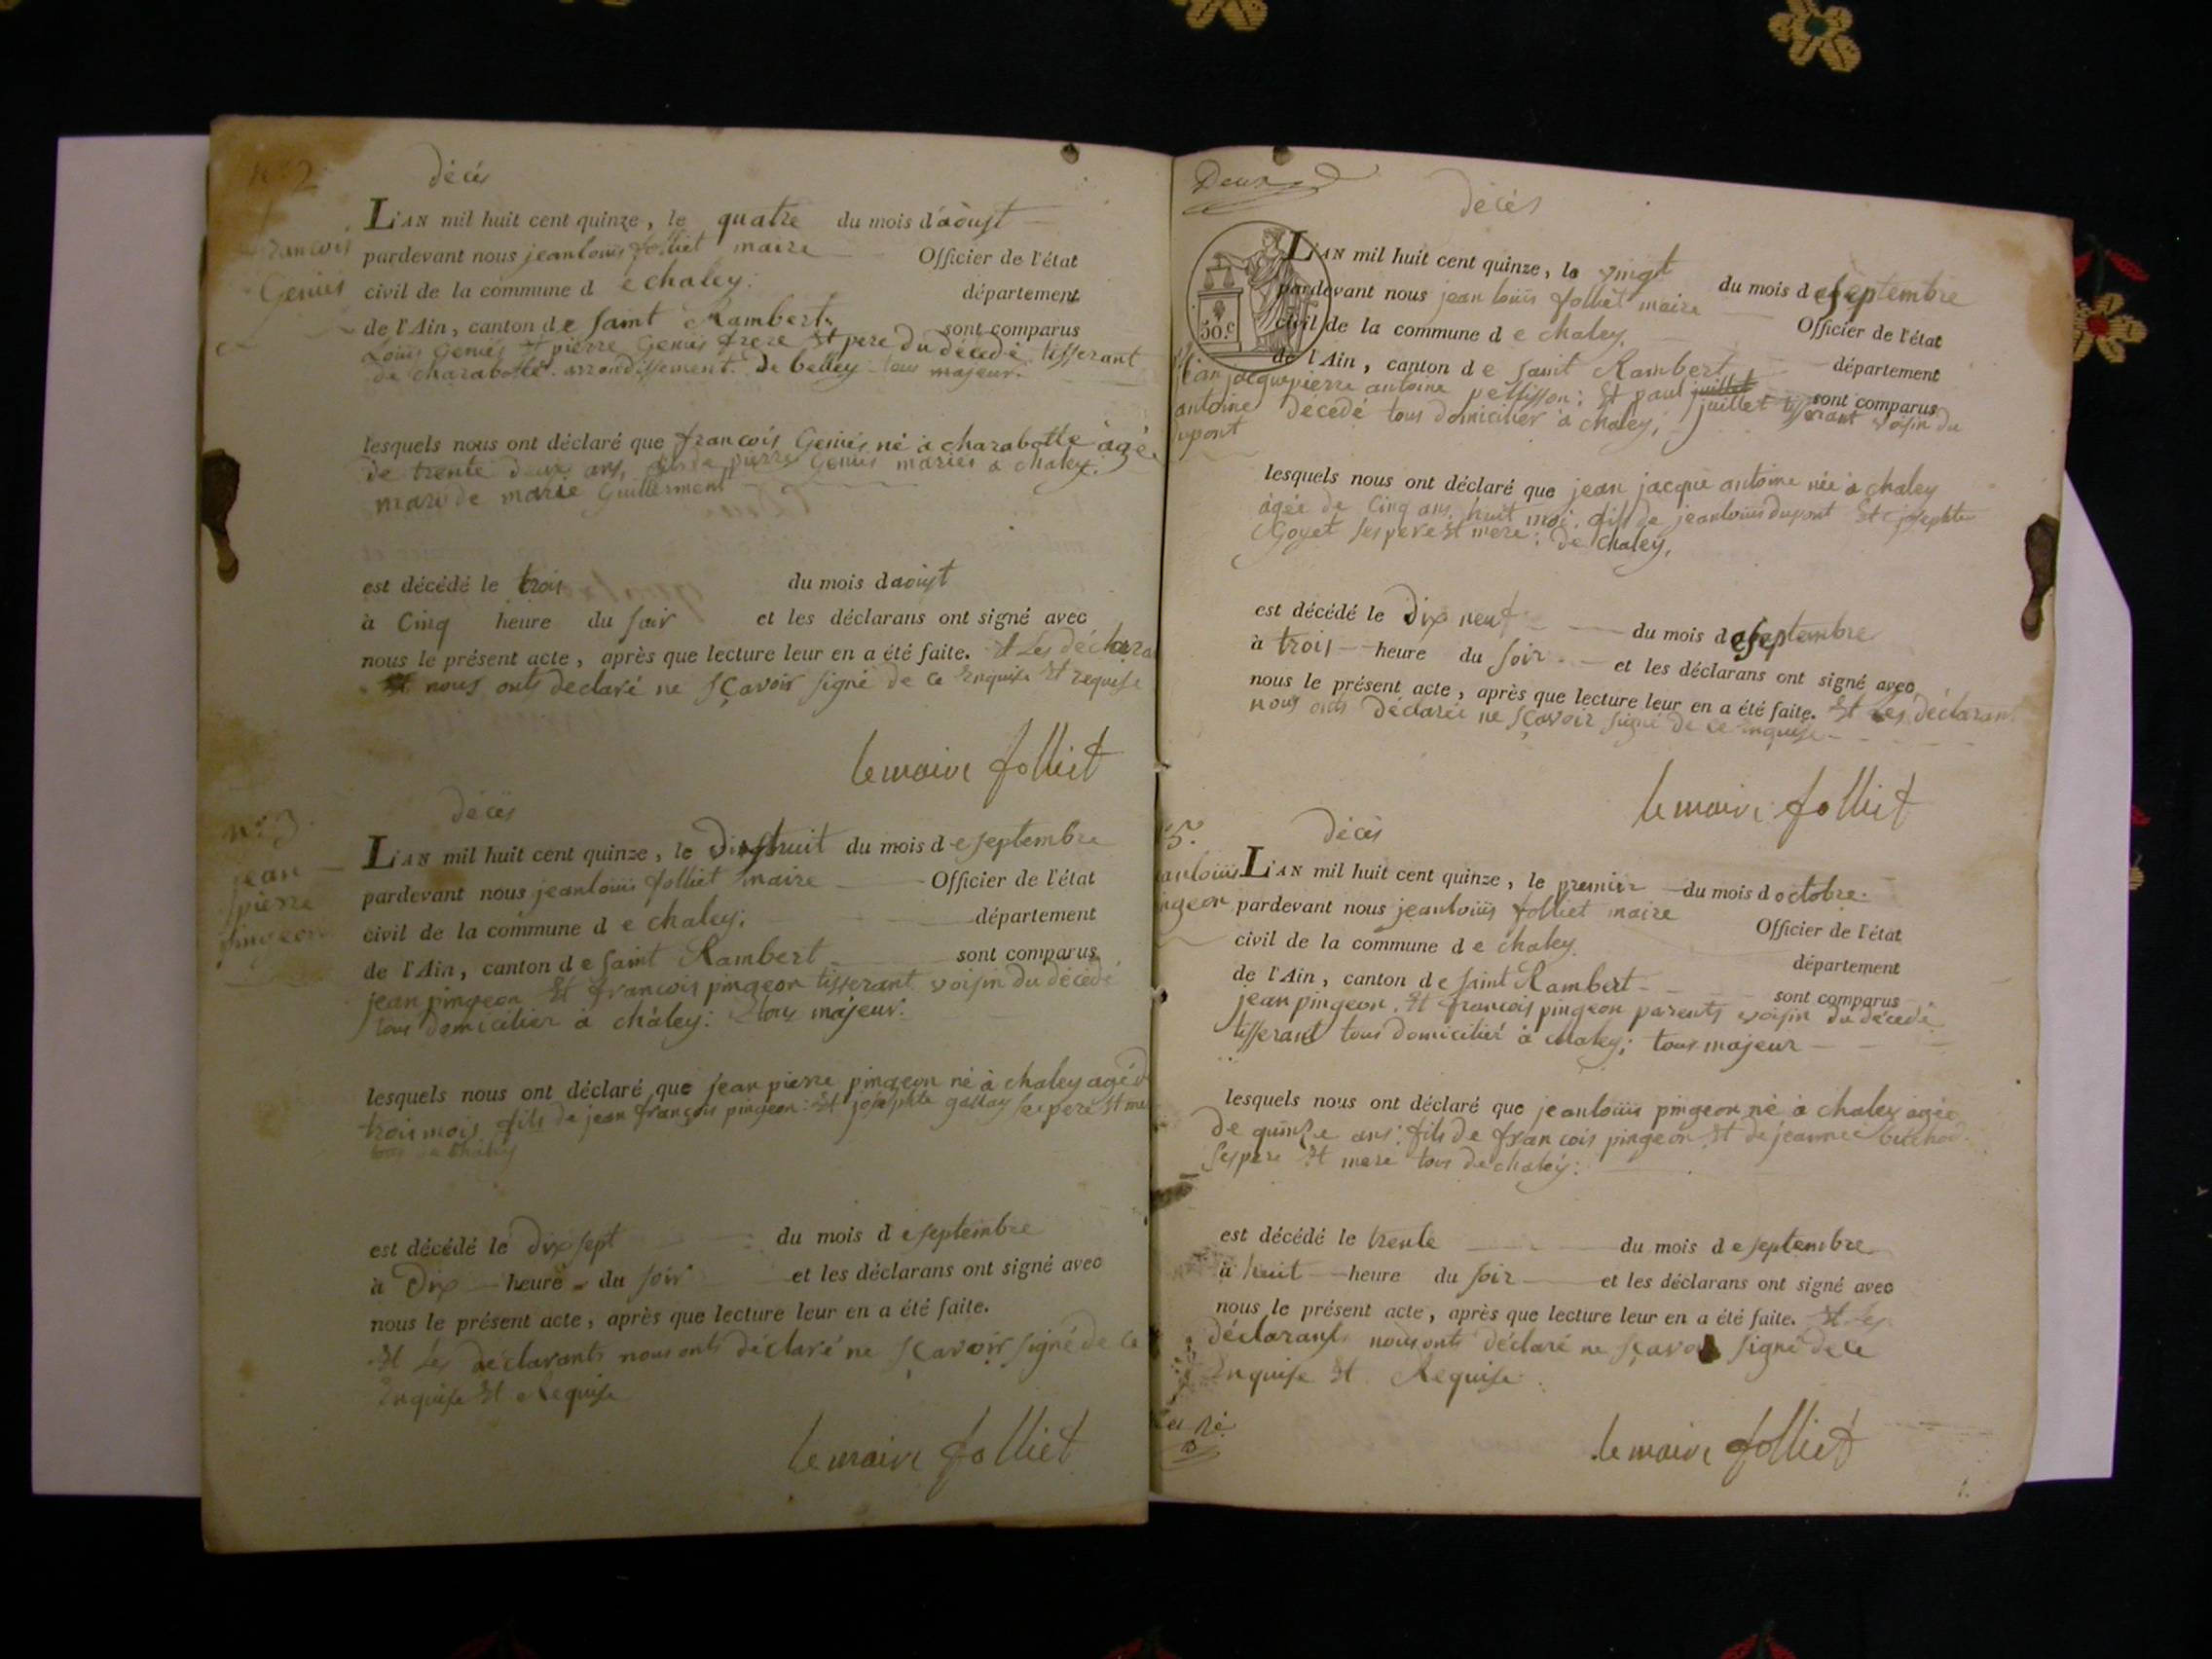 n° 2
décés
L'AN mil huit cent quinze, le quatre du mois d'aoust
francois
pardevant nous jeanlouis folliet maire Officier de l'état
Genies
civil de la commune d e chaley. département
de l'Ain, canton de saint Rambert. sont comparus
Louis Genies et pierre Genies frere et pere du décédé tisserant
de charabotte. arrondissement. de belley tous majeur.
lesquels nous ont déclaré que francois Genies né à charabotte âgé
de trente deux ans, fils de pierre Genies mariés a chaley.
mari de marie Guillerment
est décédé le trois du mois d aoust
à Cinq heure du soir et les déclarans ont signé avec
nous le présent acte, après que lecture leur en a été faite. et Les déclara
et nous onts declaré ne sçavoir signé de ce Enquise et requise
lemaire folliet
n° 3.
décés
jean
pierre
pingeon
L'AN mil huit cent quinze, le Dixhuit du mois d e septembre
pardevant nous jeanlouis folliet maire Officier de l'état
civil de la commune d e chaley; département
de l'Ain, canton d e saint Rambert sont comparus
jean pingeon et francois pingeon tisserant voisin du décedé
tous domicilier à chaley: tous majeur.
lesquels nous ont déclaré que jean pierre pingeon né à chaley agé d
trois mois fils de jean françois pingeon: et josephte gallay ses pere et me
tous de chaley
est décédé le dix sept du mois d e septembre
à Dix heure du soir et les déclarans ont signé avec
nous le présent acte, après que lecture leur en a été faite.
et Les déclarants nous onts déclaré ne sçavoir signé de ce
Enquise et Requise
lemaire folliet
Deux
décés
L'AN mil huit cent quinze, le vingt du mois d e septembre
pardevant nous jean louis folliet maire Officier de l'état
50.c
civil de la commune d e chaley, département
de l'Ain, canton d e saint Rambert sont comparus
jean jacque
antoine
dupont
pierre antoine pellisson; Et paul juillet juillet tisserant voisin du
décédé tous domicilier à chaley;
lesquels nous ont déclaré que jean jacque antoine née à chaley
âgée de Cinq ans, huit moi, fils de jeanlouis dupont et josephte
Goyet ses pere et mere; de chaley,
est décédé le Dix neuf du mois d e septembre
à trois heure du soir et les déclarans ont signé avec
nous le présent acte, après que lecture leur en a été faite. Et Les déclarant
nous onts déclarée ne sçavoir signé de ce Enquise
lemaire folliet
5.
décés
anlouis
ngeon
L'AN mil huit cent quinze, le premier du mois d octobre.
pardevant nous jeanlouis folliet maire Officier de l'état
civil de la commune d e chaley. département
de l'Ain, canton d e saint Rambert sont comparus
jean pingeon. Et francois pingeon parents voisin du décedé
tisserant tous domicilié à chaley; tous majeur
lesquels nous ont déclaré que jeanlouis pingeon né à chaley agée
de quinze ans: fils de francois pingeon et de jeanne
ses pere et mere tous de chaley:
est décédé le trente du mois d e septembre
à huit heure du soir et les déclarans ont signé avec
nous le présent acte, après que lecture leur en a été faite. Et Les
déclarants nous onts déclaré ne sçavoir signé de ce
Enquise et Requise.
lemaire folliet